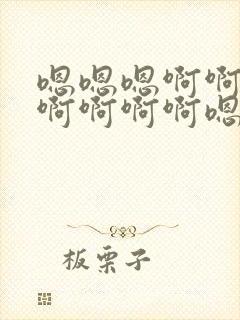 嗯嗯嗯啊啊
啊啊啊啊嗯
板栗子